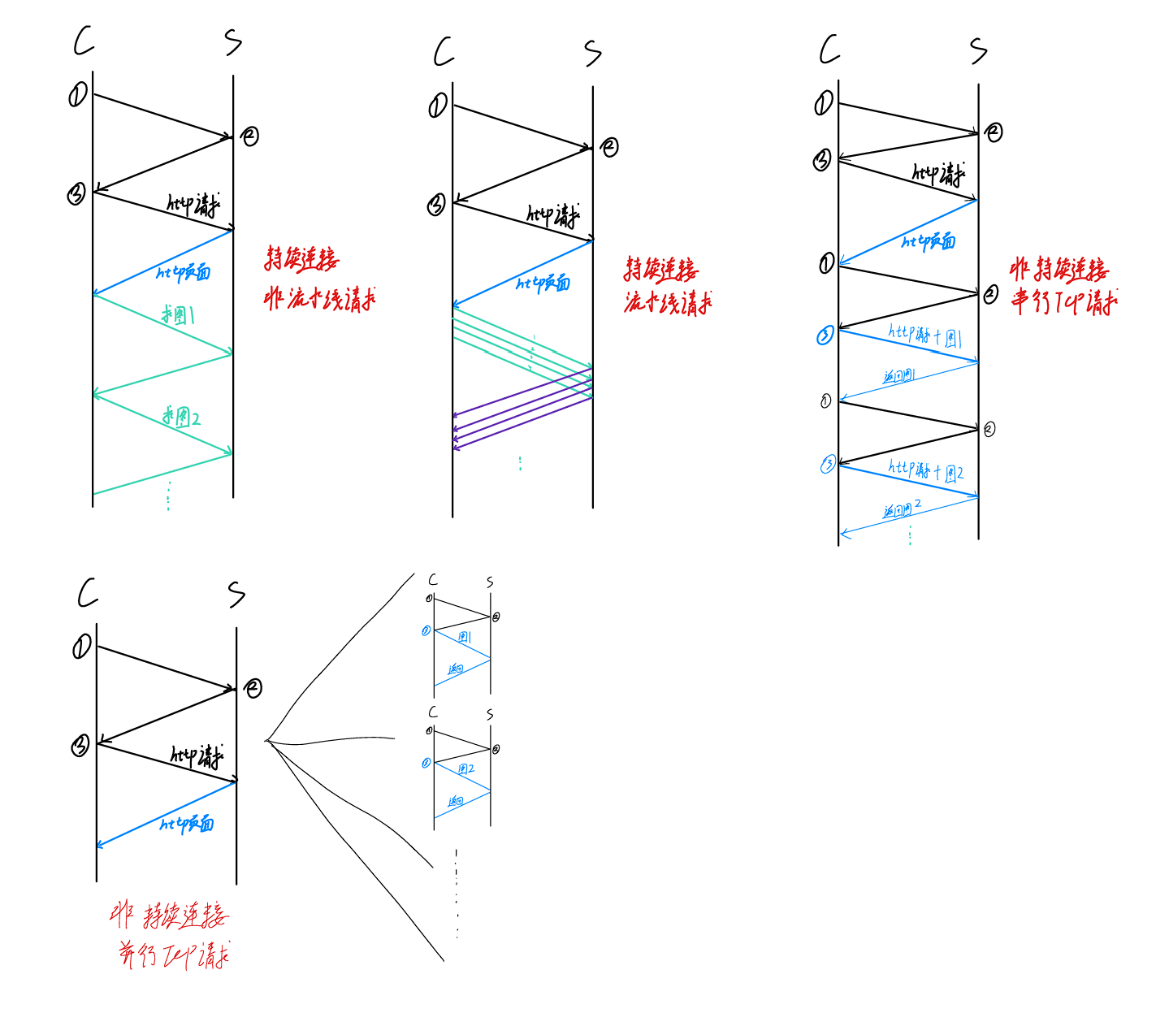 C S
①
②
③
http请求
http页面
求图1
求图2
持续连接
非流水线请求
C S
①
②
③
http请求
http页面
持续连接
流水线请求
C S
①
②
③
http请求
http页面
①
②
③
http请求+图1
返回图1
①
②
③
http请求+图2
返回图2
非持续连接
串行Tcp请求
C S
①
②
③
http请求
http页面
非持续连接
并行Tcp请求
C S
①
②
③
图1
返回
C S
①
②
③
图2
返回